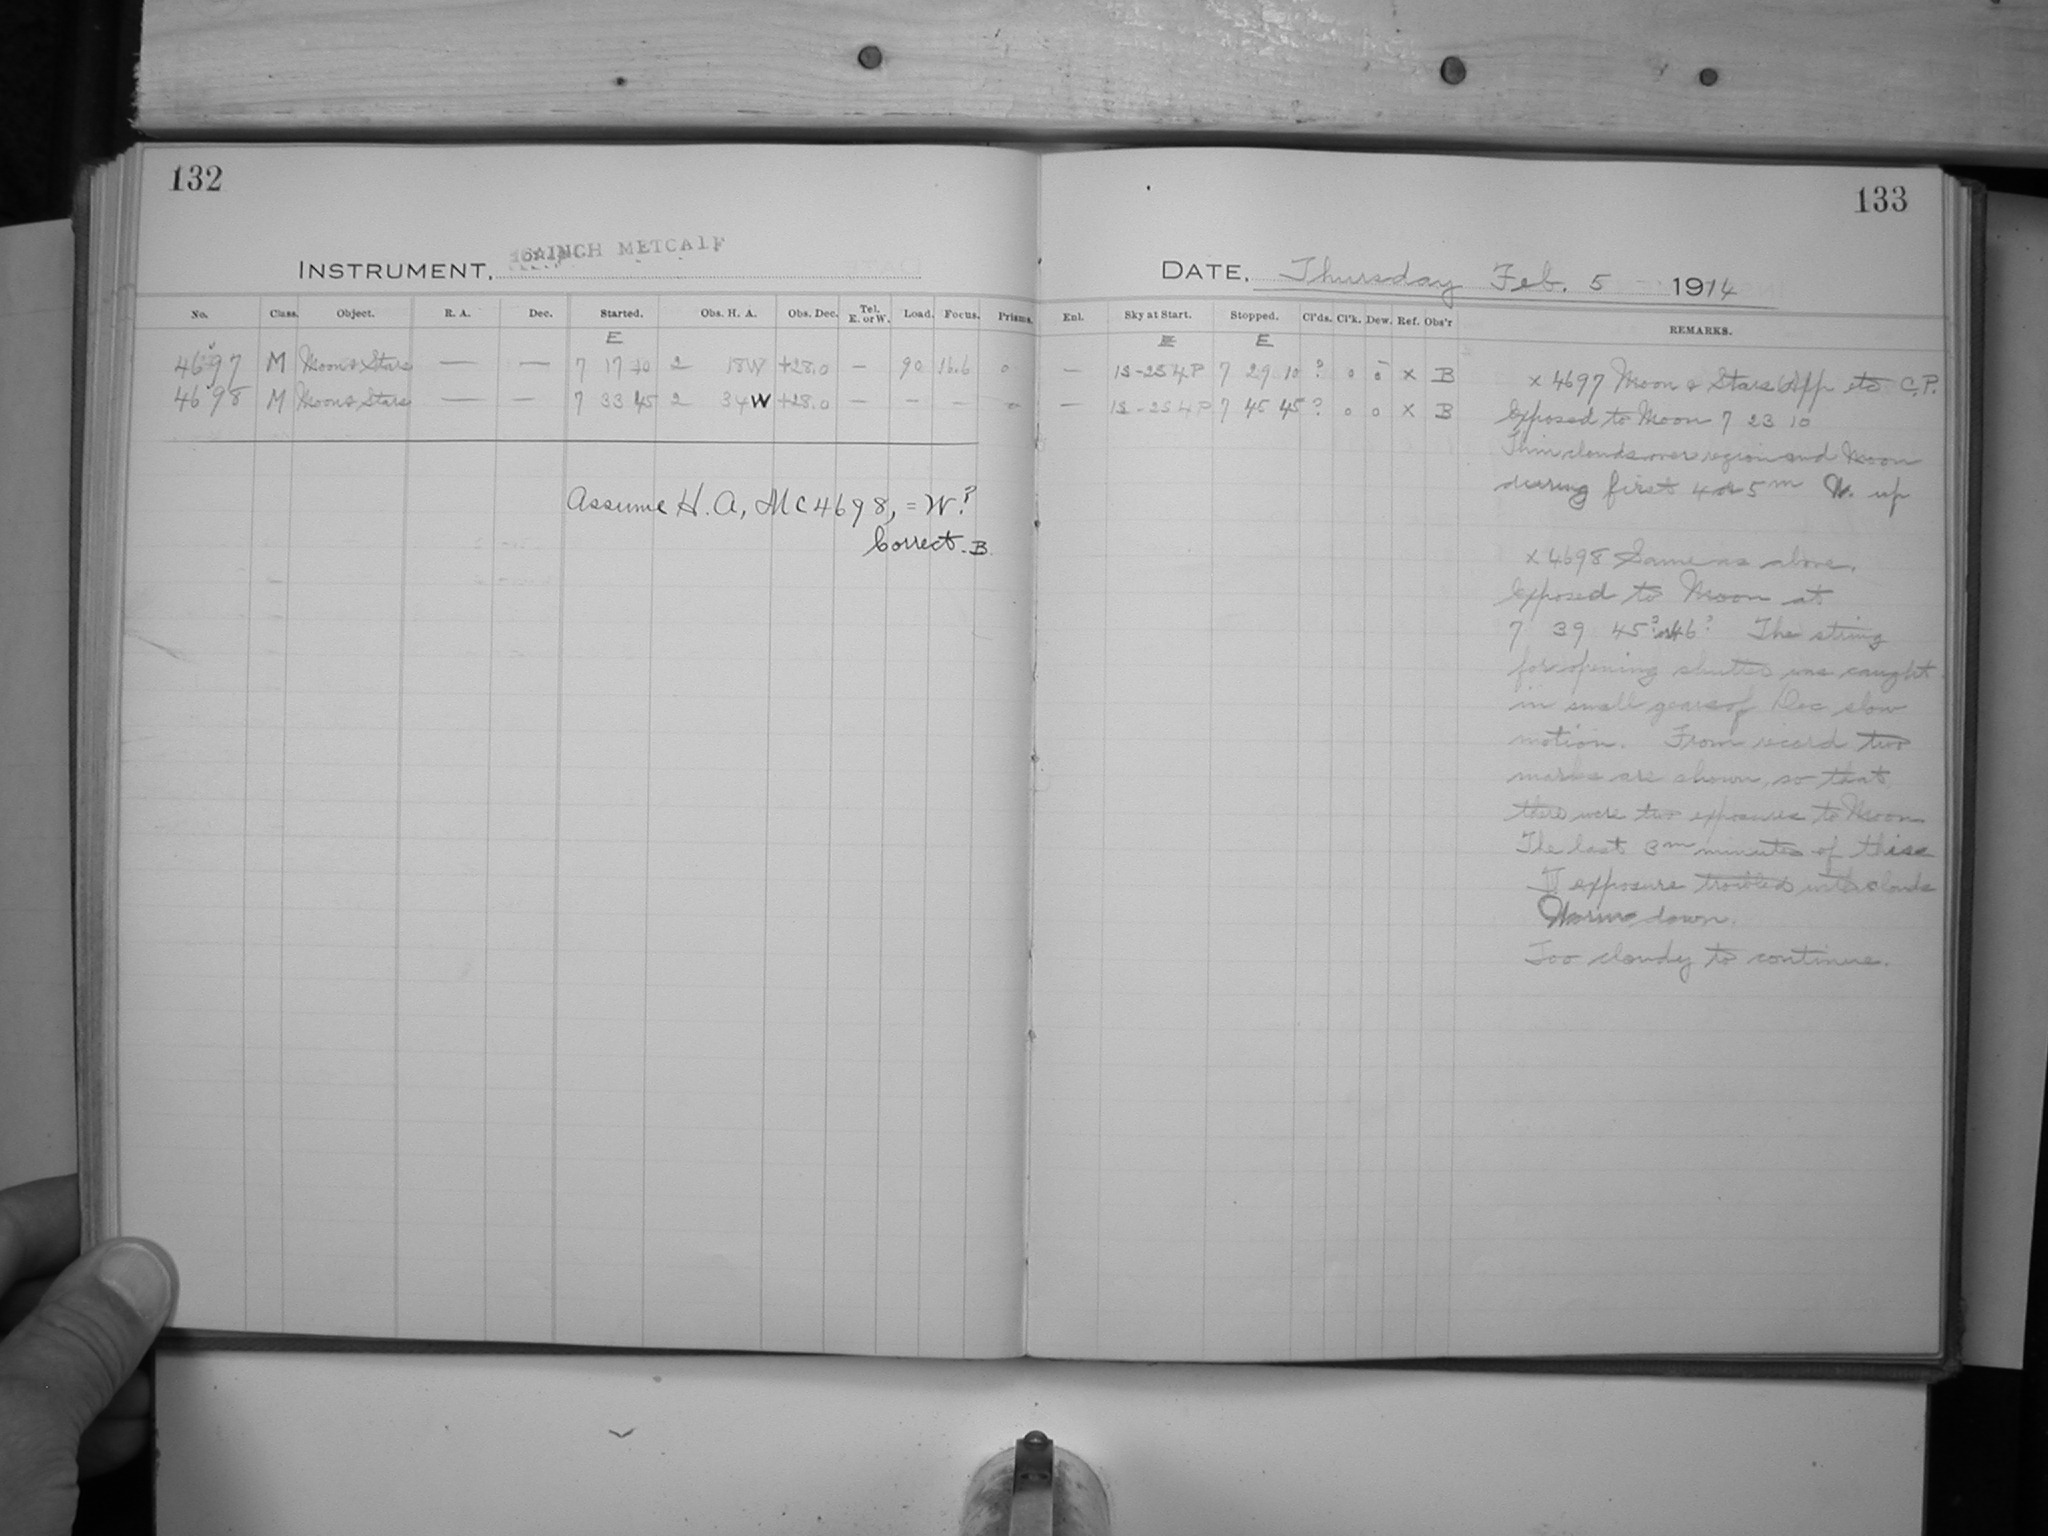 132
INSTRUMENT, 16 INCH METCALF
No. Class. Object. R. A. Dec. Started. Obs. H. A. Obs. Dec. Tel. E. or W. Load. Focus. Prisms.
E
4697 M Moon & Stars — — 7 17 10 2 18W +28.0 — 90 16.6 0
4698 M Moon & Stars — — 7 33 45 2 34W +28.0 — — — 0
Assume H. A, MC4698, = W?
Correct. B.
133
DATE, Thursday Feb. 5 1914
Enl. Sky at Start. Stopped. Cl'ds. Cl'k. Dew. Ref. Obs'r REMARKS.
E E
— 1S-2S4P 7 29 10 ? 0 0 x B
— 1S-2S4P 7 45 45 ? 0 0 x B
x 4697 Moon & Stars App etc C.P.
Exposed to Moon 7 23 10
Thin clouds over region and Moon
during first 4 or 5m N. up
x 4698 Same as above.
Exposed to Moon at
7 39 45? or 46? The string
for opening shutter was caught
in small gears of Dec slow
motion. From record two
marks are shown, so that
there were two exposures to Moon
The last 3m minutes of this
exposure troubled with clouds
down.
Too cloudy to continue.